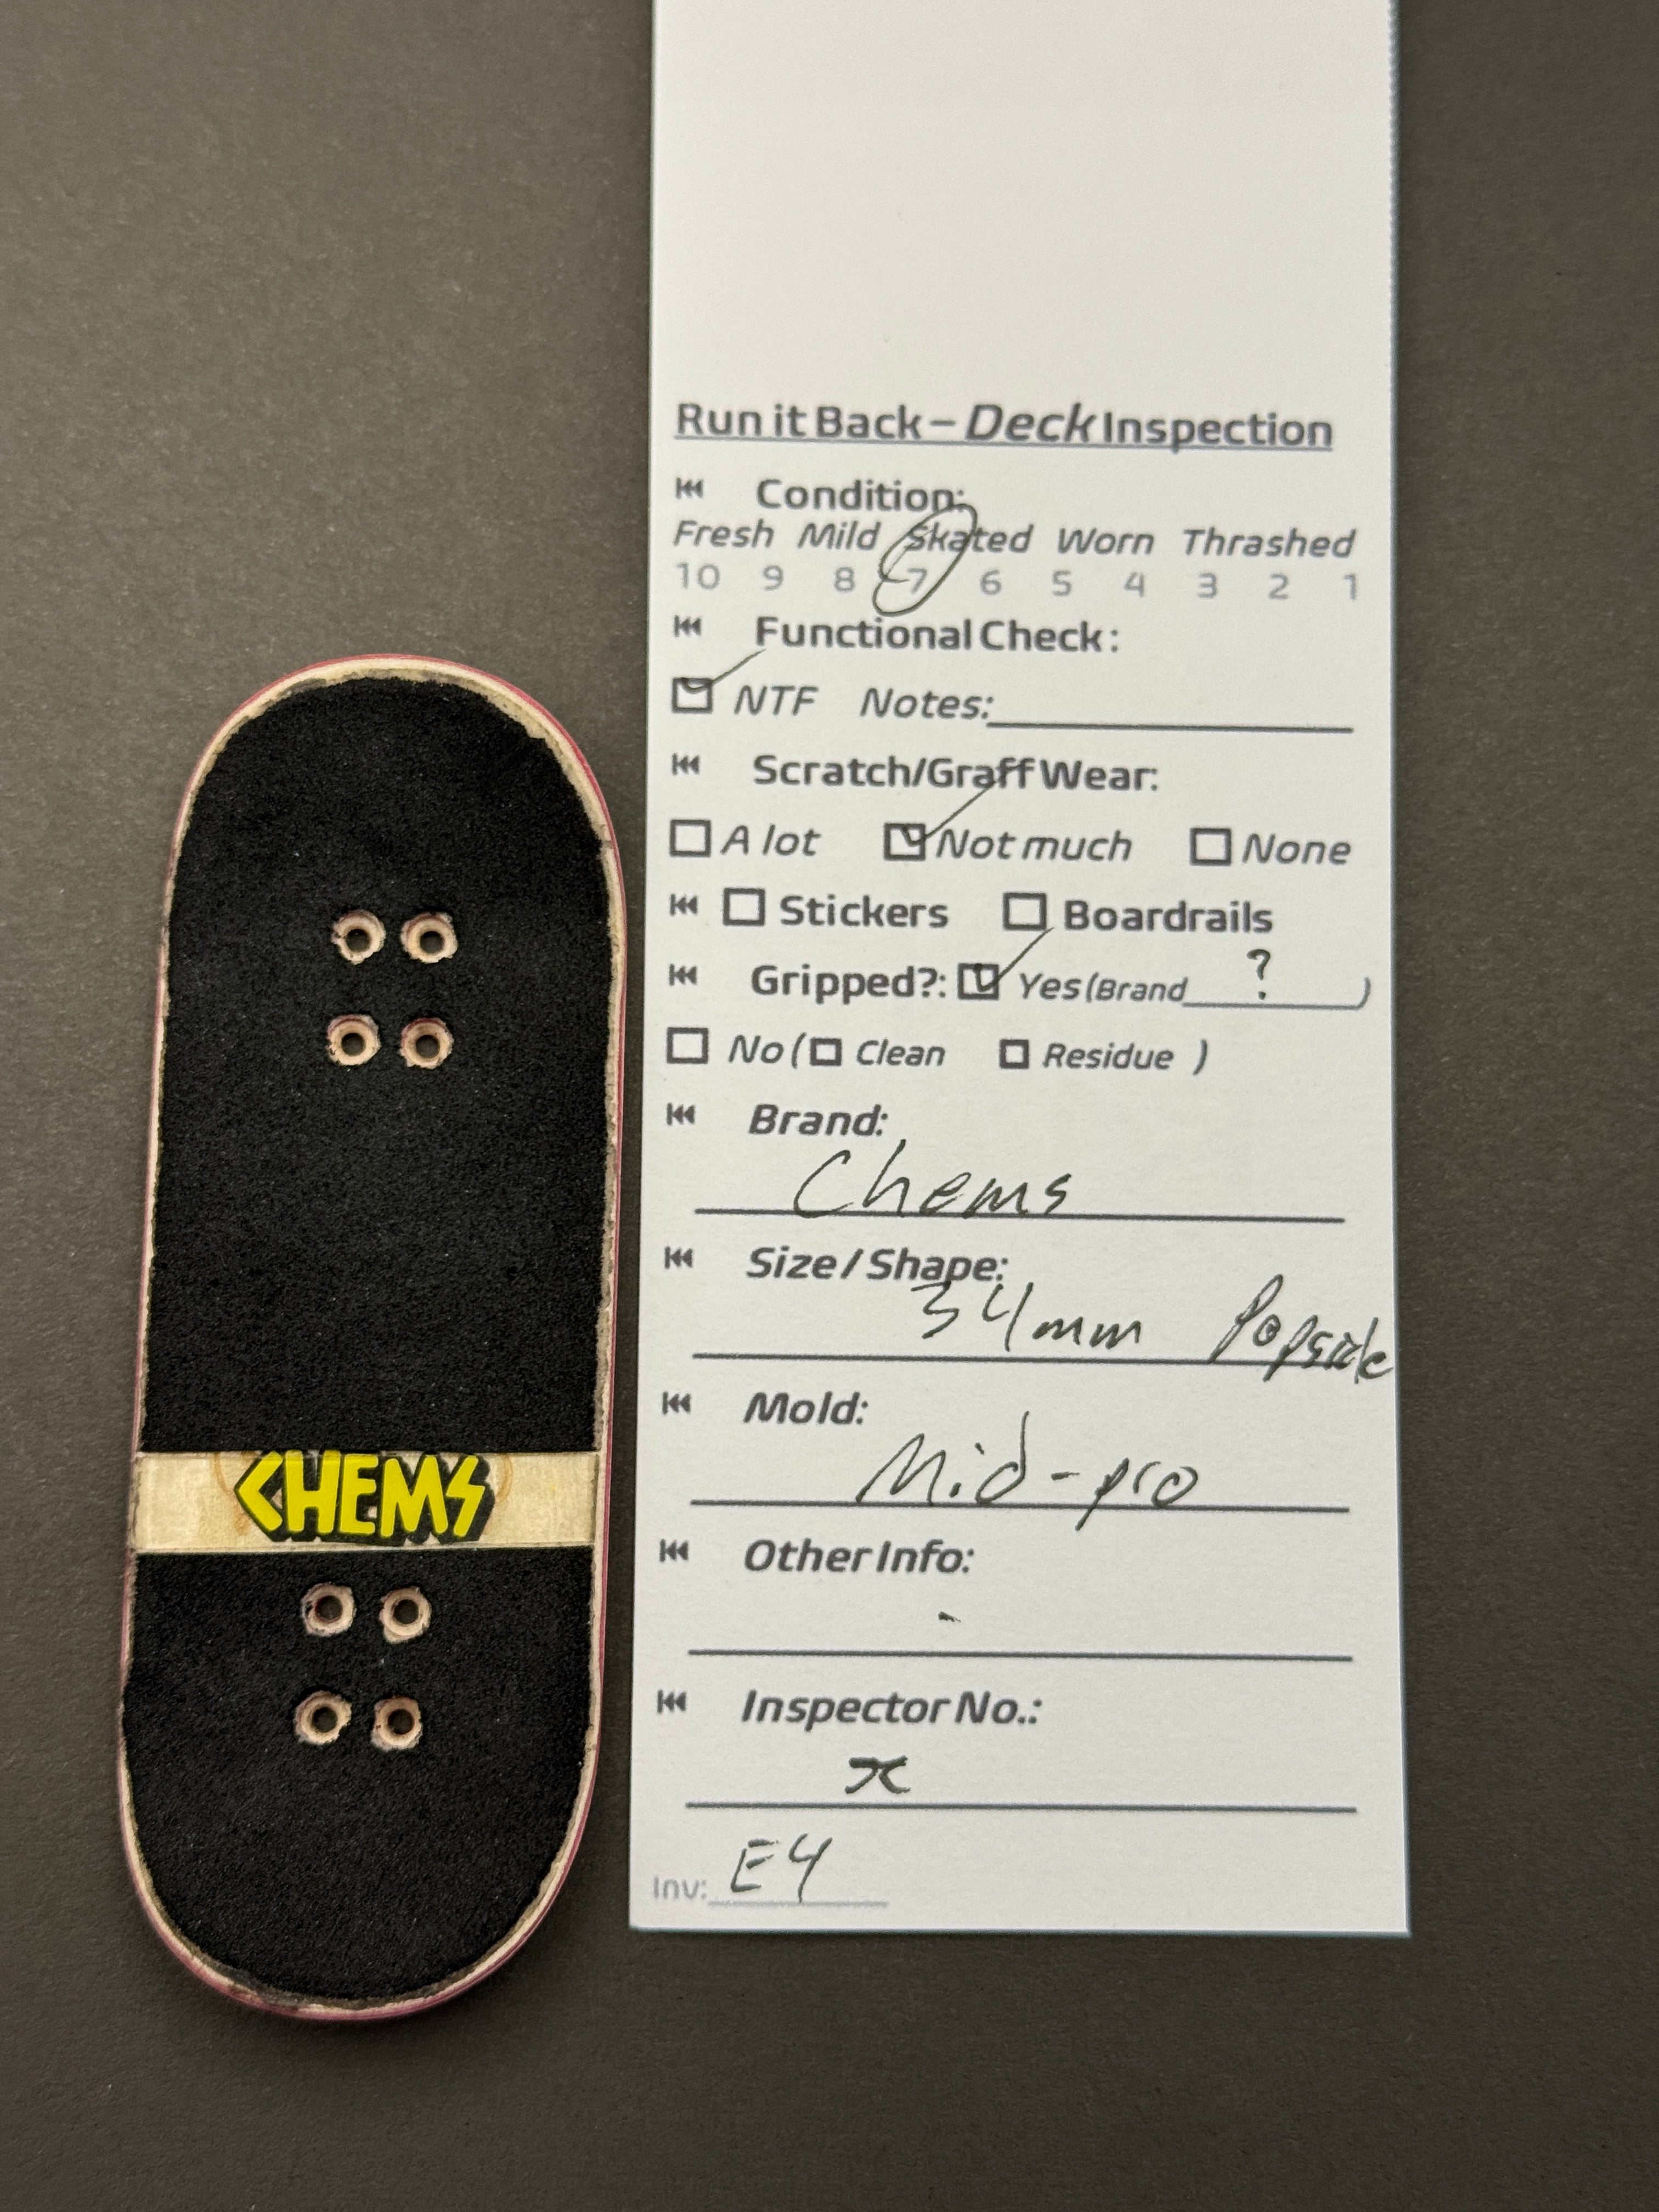 Run it Back – Deck Inspection
Condition:
Fresh Mild Skated Worn Thrashed
10 9 8 7 6 5 4 3 2 1
Functional Check:
NTF Notes:
Scratch/Graff Wear:
A lot Not much None
Stickers Boardrails
Gripped?: Yes (Brand ? )
No ( Clean Residue )
Brand:
Chems
Size / Shape:
34mm Popsicle
Mold:
Mid-pro
Other Info:
-
Inspector No.:
x
Inv: E4
CHEMS